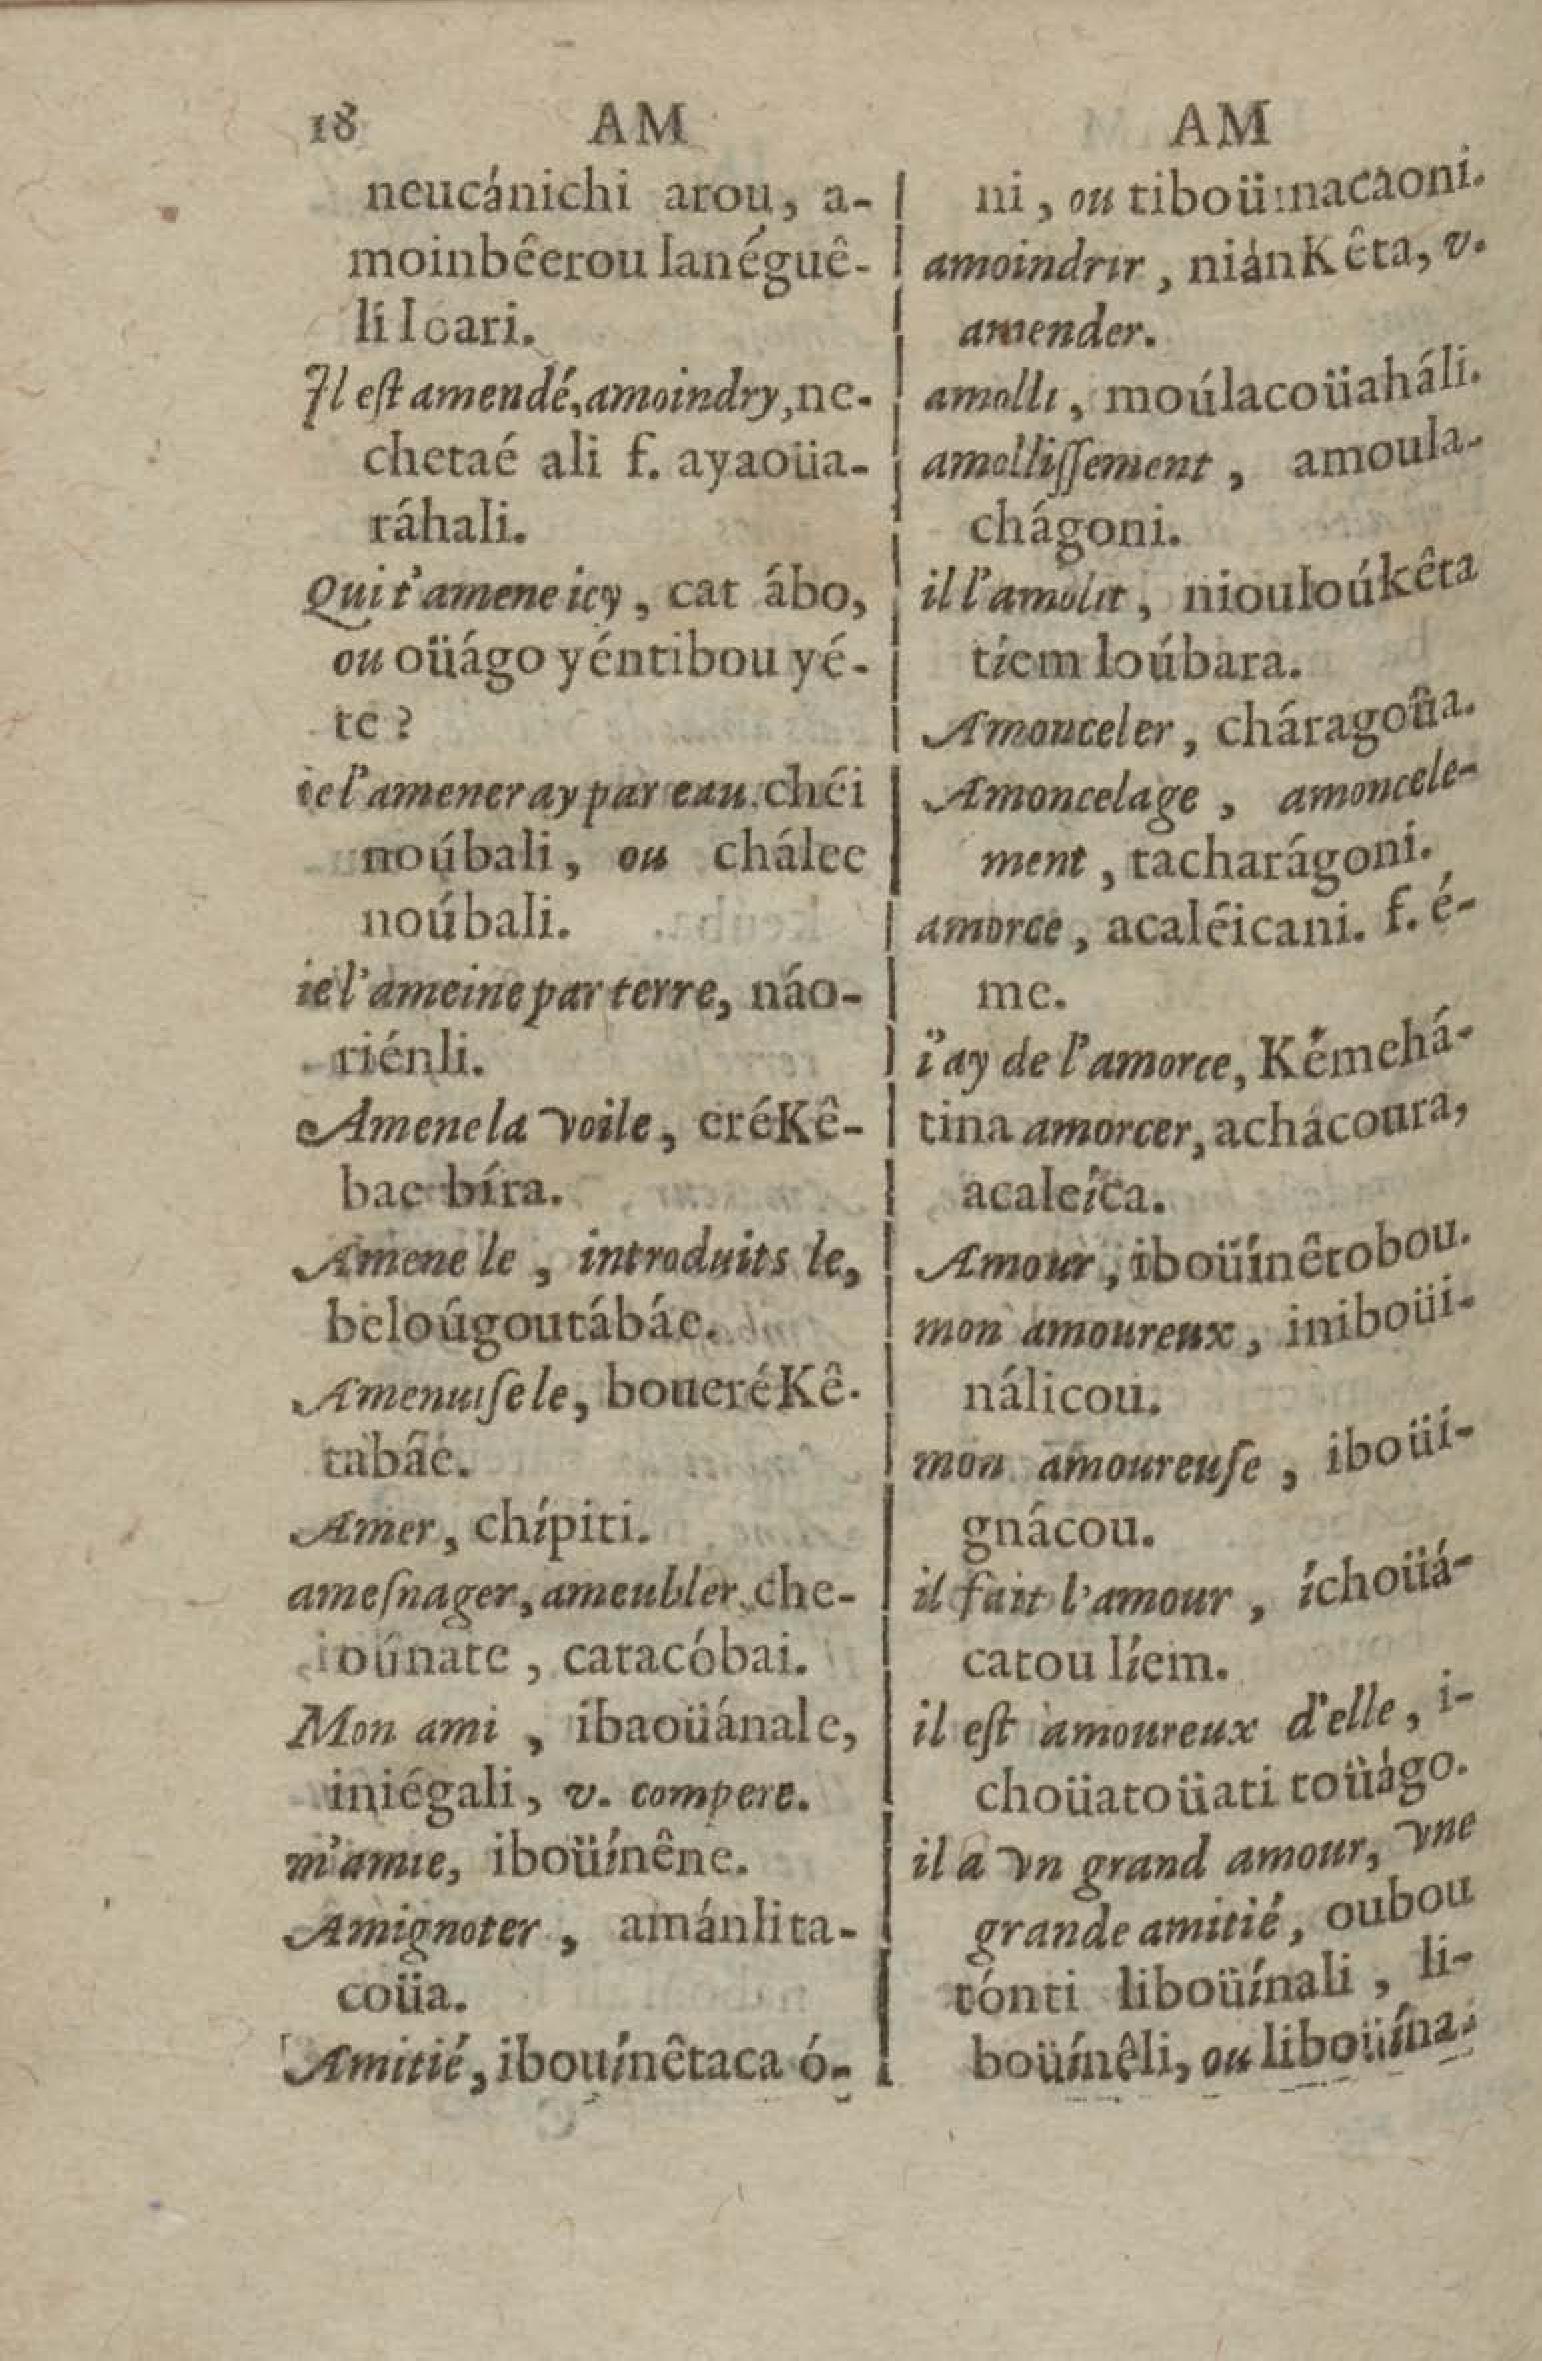 18 AM
neucánichi arou, a-
moinbêerou lanéguê-
li Icari.
Il eſt amendé, amoindry, ne-
chetaé ali f. ayaoüa-
ráhali.
Qui t'amene icy, cat ábo,
ou oüágo yéntibou yé-
te?
ie l'ameneray par eau. chéi
noúbali, ou chálee
noúbali.
ie l'ameine par terre, náo-
riénli.
Amene la voile, eréKê-
bae bíra.
Amene le, introduits le,
beloúgoutábáe.
Amenuiſe le, boueréKê-
tabâe.
Amer, chípiti.
ameſnager, ameubler, che-
ioûnate, catacóbai.
Mon ami, ibaoüánale,
iniégali, v. compere.
m'amie, iboüínêne.
Amignoter, amánlita-
coüa.
Amitié, ibouínêtaca ó-
AM
ni, ou tiboüinacaoni.
amoindrir, niánKêta, v.
amender.
amolli, moúlacoüaháli.
amolliſſement, amoula-
chágoni.
il l'amolit, niouloúkêta
tíem loúbara.
Amonceler, cháragoûa.
Amoncelage, amoncele-
ment, tacharágoni.
amorce, acalêicani. f. é-
me.
i'ay de l'amorce, Kémehá-
tina amorcer, achácoura,
acaleíca.
Amour, iboüínêtobou.
mon amoureux, iniboüi-
nálicou.
mon amoureuſe, iboüí-
gnácou.
il fait l'amour, íchoüá-
catou líem.
il eſt amoureux d'elle, i-
choüatoüati toüágo.
il a vn grand amour, vne
grande amitié, oubou
tónti liboüínali, li-
boüínêli, ou liboüína-